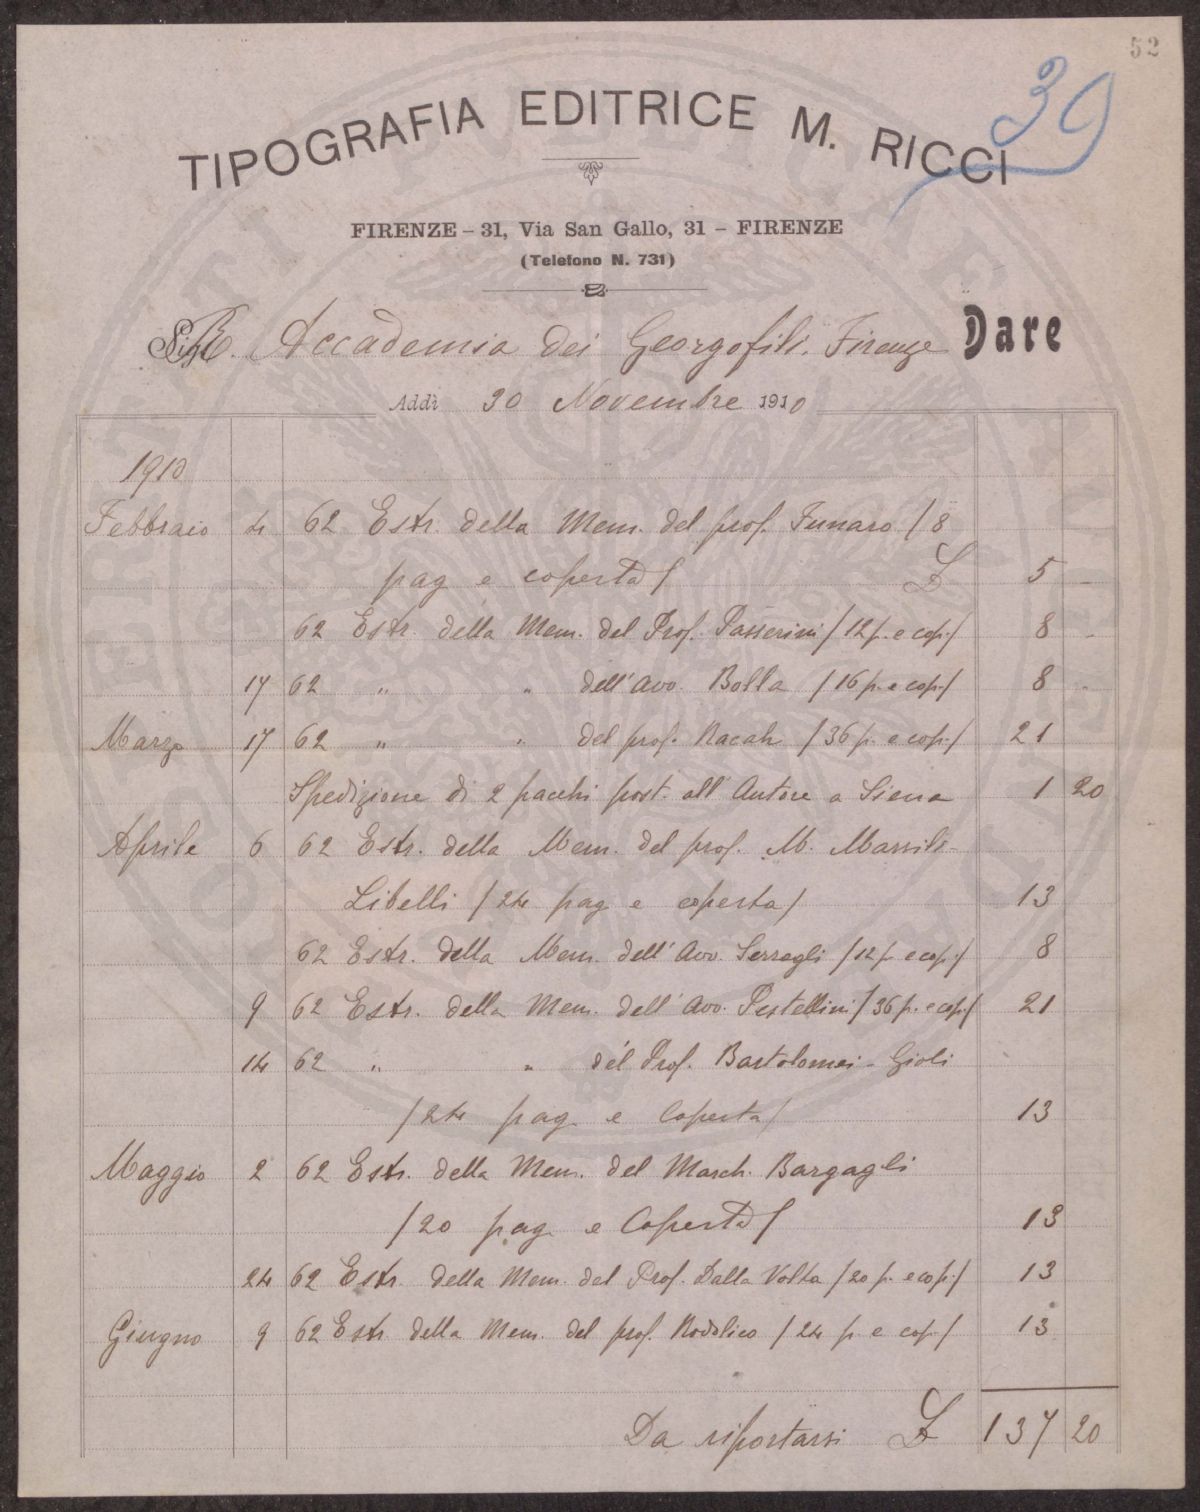 52
39
TIPOGRAFIA EDITRICE M. RICCI
FIRENZE – 31, Via San Gallo, 31 – FIRENZE
(Telefono N. 731)
R. Accademia dei Georgofili. Firenze Dare
Addì 30 Novembre 1910
1910
Febbraio 4 62 Estr. della Mem. del prof. Funaro / 8
pag e coperta / L 5 –
62 Estr. della Mem. del Prof. Passerini / 12 p. e cop. / 8 –
17 62 " " dell'Avv. Bolla / 16 p. e cop. / 8 –
Marzo 17 62 " " del prof. Racah / 36 p. e cop. / 21
Spedizione di 2 pacchi post. all'Autore a Siena 1 20
Aprile 6 62 Estr. della Mem. del prof. M. Marsili-
Libelli / 24 pag e coperta / 13
62 Estr. della Mem. dell'Avv. Serragli / 12 p. e cop. / 8
9 62 Estr. della Mem. dell'Avv. Pestellini / 36 p. e cop. / 21
14 62 " " del Prof. Bartolomei-Gioli
/ 24 pag e Coperta / 13
Maggio 2 62 Estr. della Mem. del March. Bargagli
/ 20 pag e Coperta / 13
24 62 Estr. della Mem. del Prof. Dalla Volta / 20 p. e cop. / 13
Giugno 9 62 Estr. della Mem. del prof. Rodolico / 24 p. e cop. / 13
Da riportarsi L 137 20